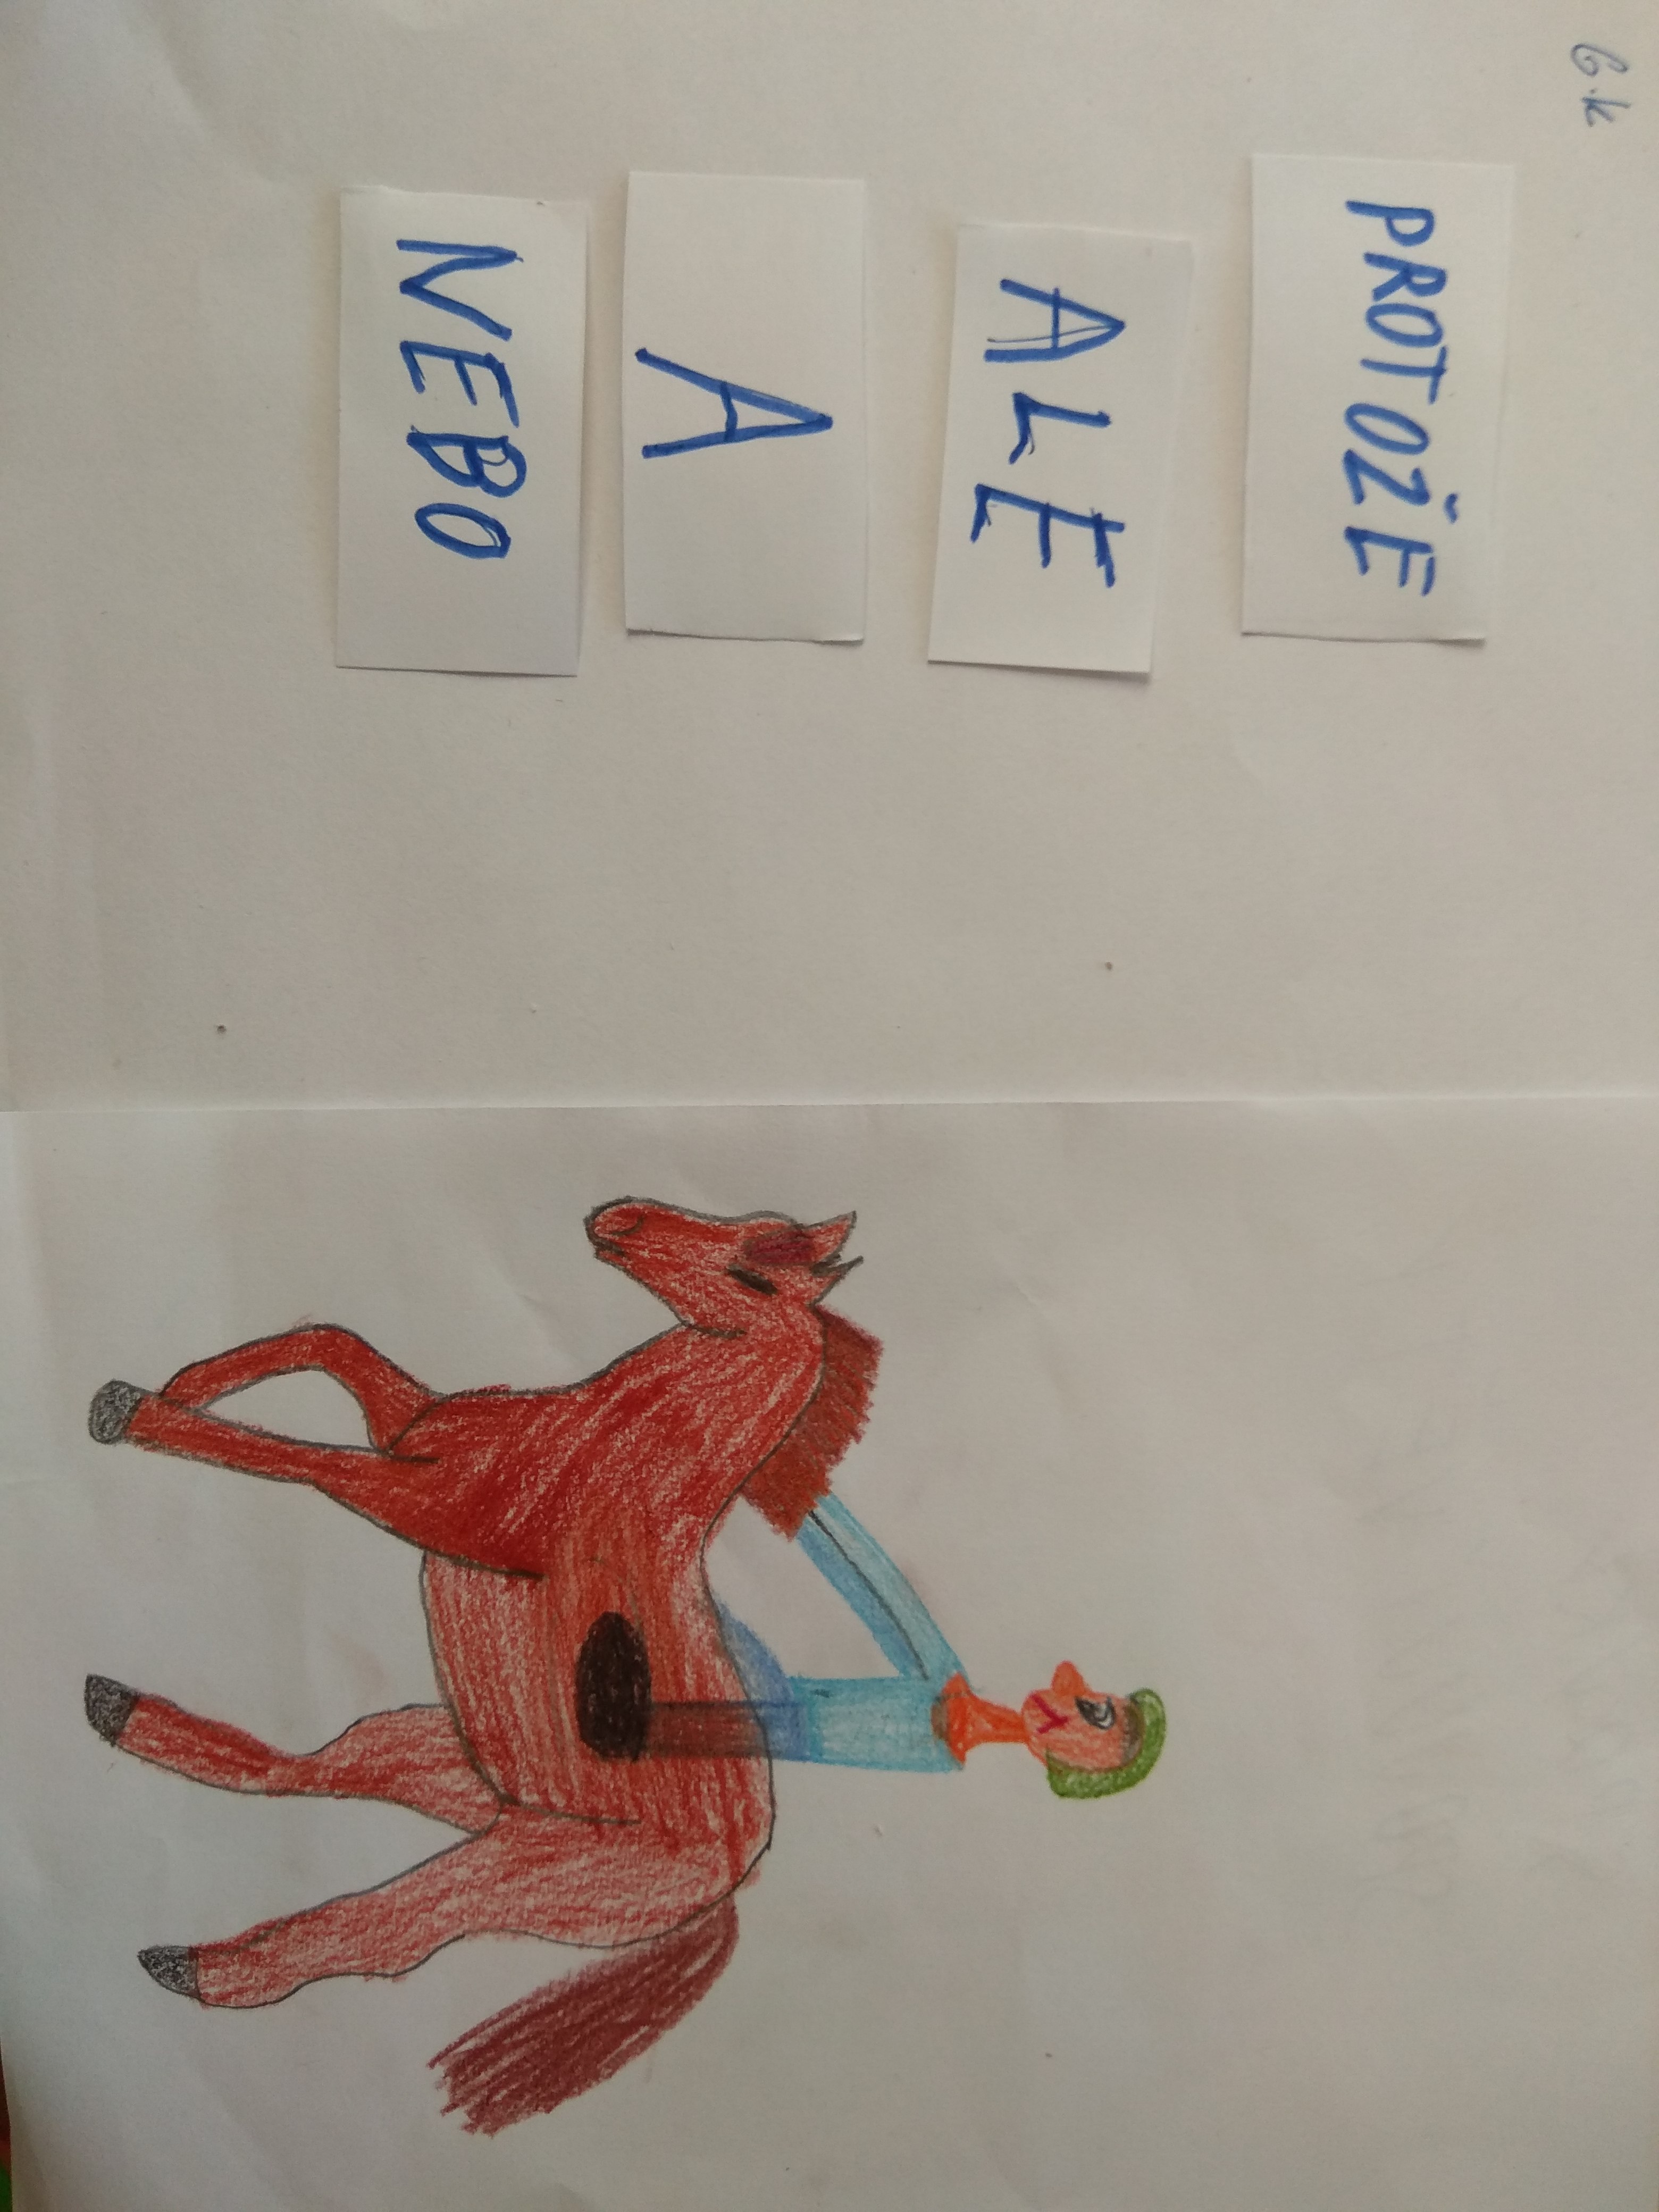 6.k
PROTOŽE
ALE
A
NEBO